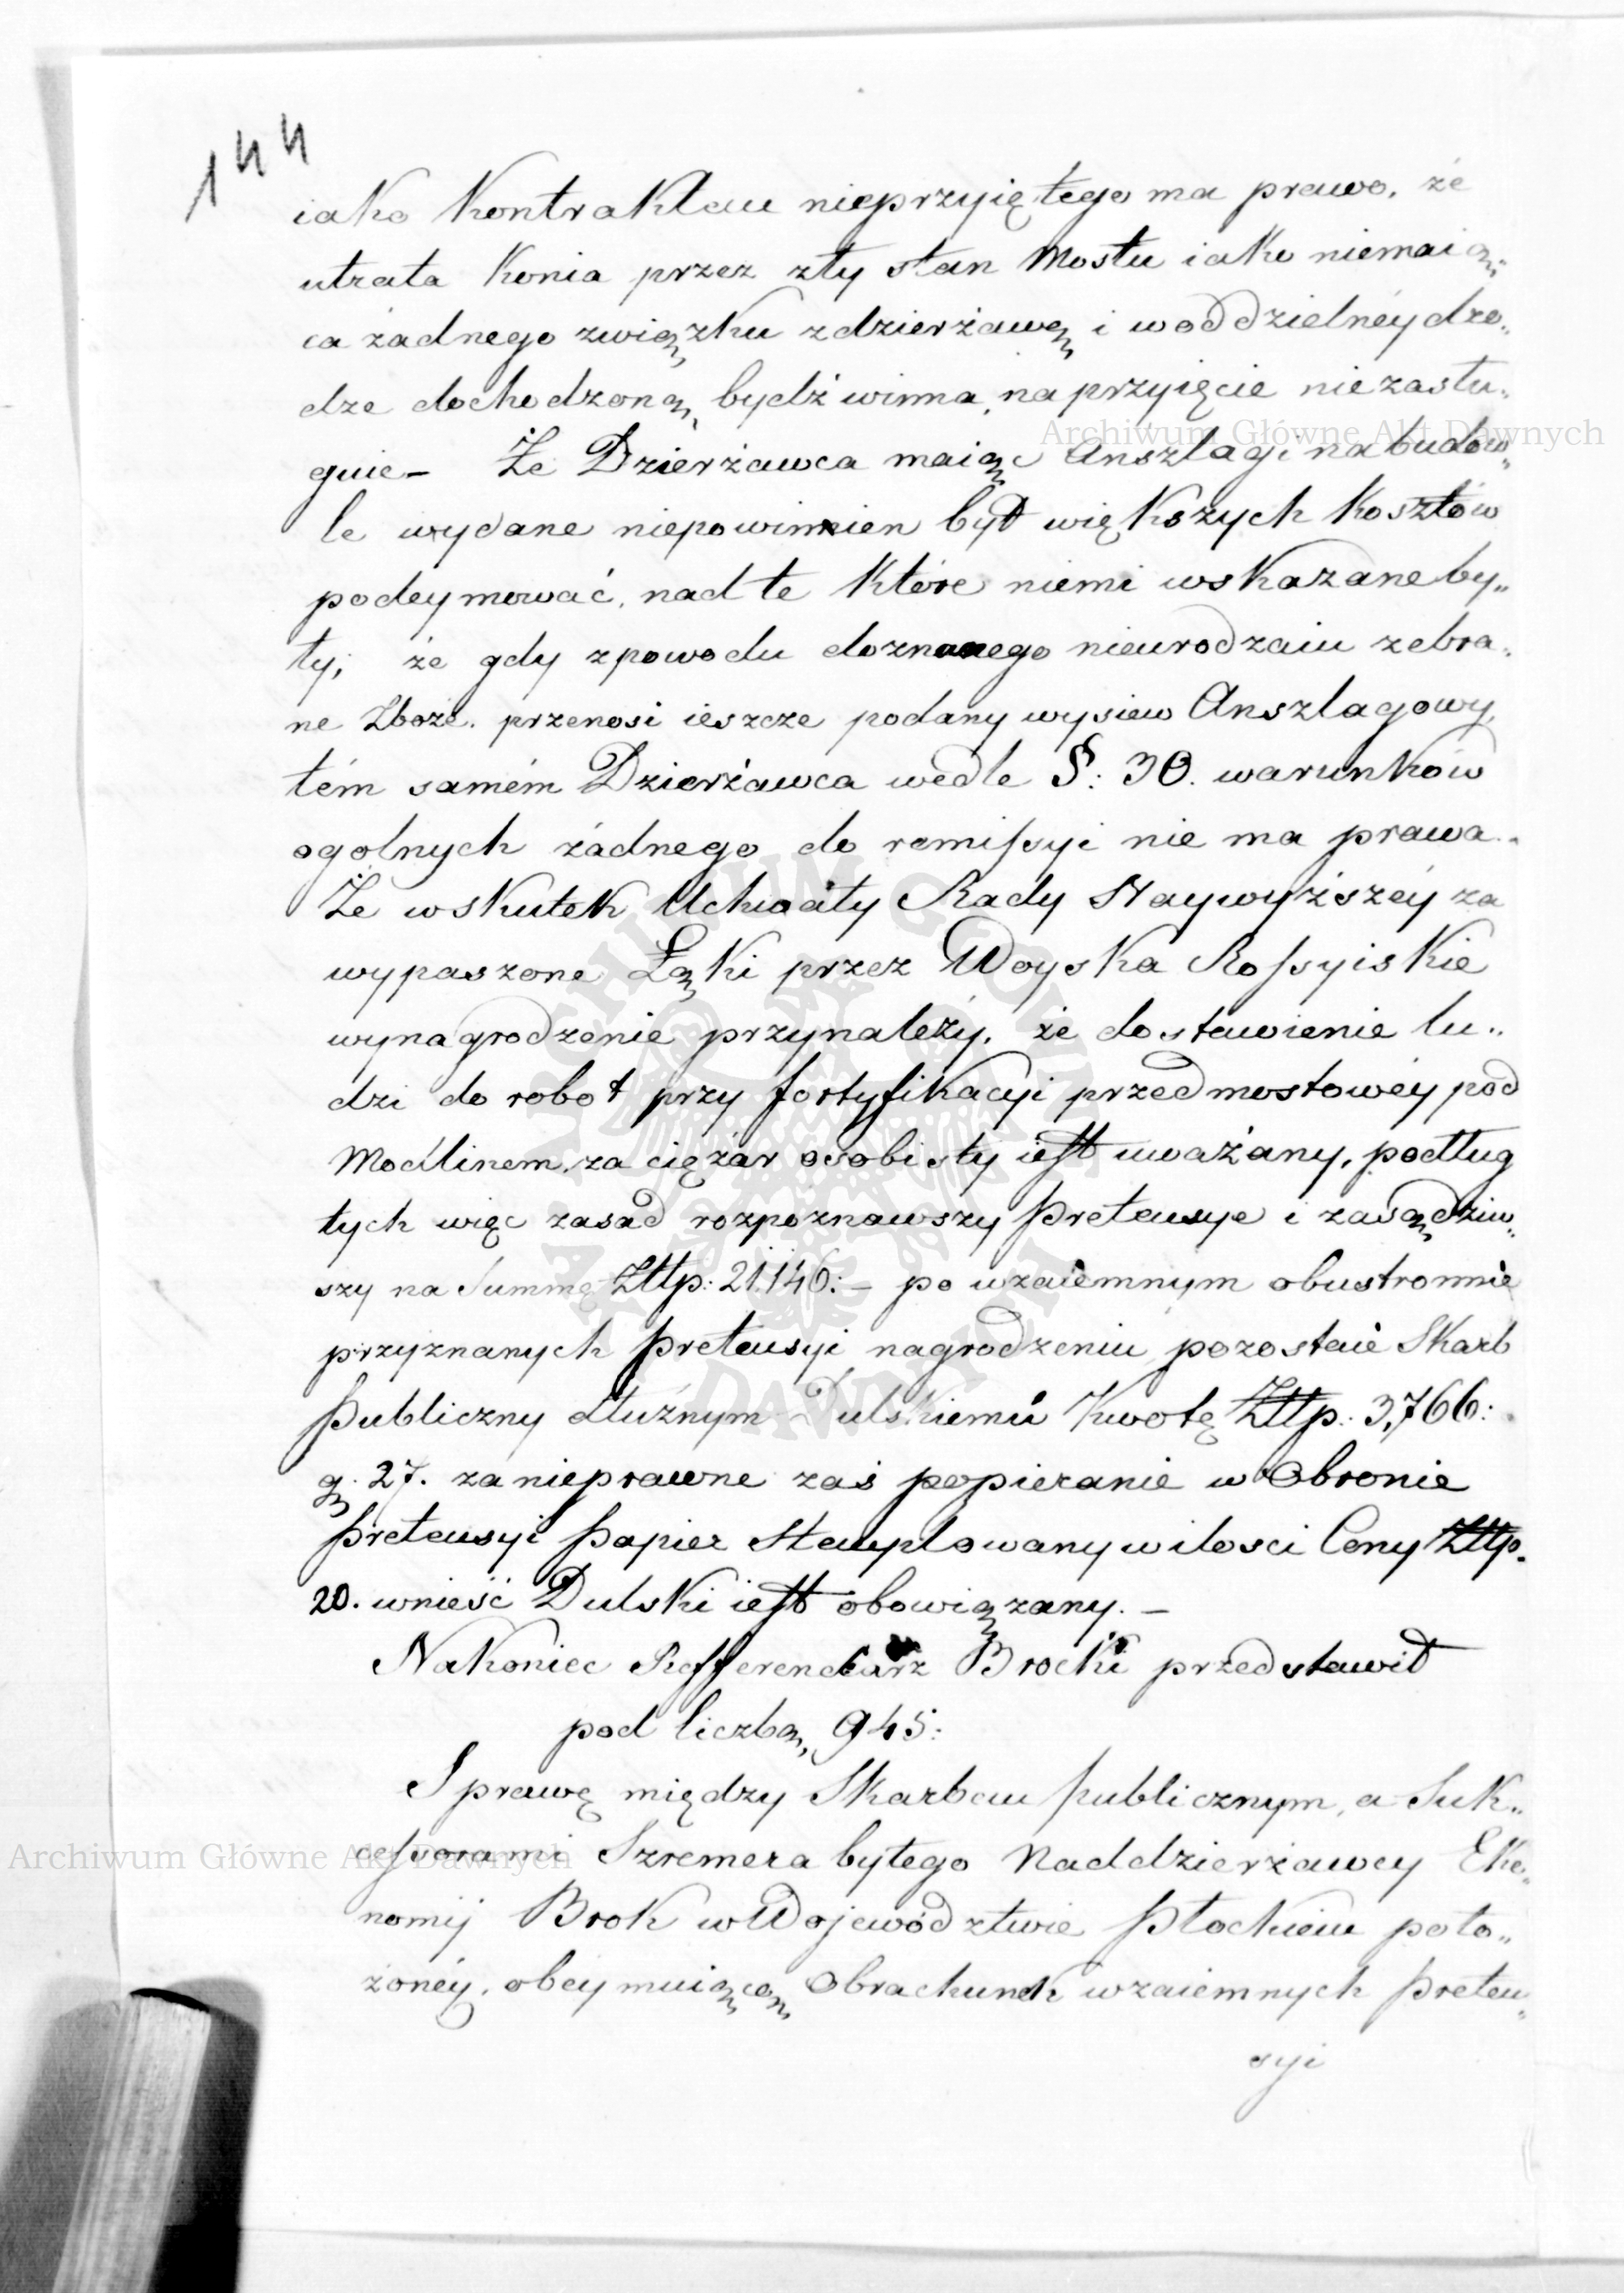 144
iako Kontraktem nieprzyiętego ma prawo, że
utrata Konia przez zły stan Mostu iako niemaią„
ca żadnego związku z dzierżawą i w oddzielnéy dro„
dze dochodzoną bydź winna, na przyięcie niezasłu„
guie – Że Dzierżawca maiąc Anszlagi na budow„
le wydane niepowinnien był większych kosztów
podeymować, nad te które niemi wskazane by„
ły; że gdy z powodu doznanego nieurodzaiu zebra„
ne Zboże, przenosi ieszcze podany wysiew Anszlagowy,
tém samém Dzierżawca wedle §: 30. warunków
ogolnych żadnego do remissyi nie ma prawa.
Że wskutek Uchwały Rady Naywyższéy za
wypaszone Łąki przez Woyska Rossyiskie
wynagrodzenie przynależy, że dostawienie lu„
dzi do robot przy fortyfikacyi przedmostowéy pod
Modlinem, za ciężar osobisty iest uważany, podług
tych więc zasad rozpoznawszy Pretensye i zasądziw„
szy na Summę Złłp: 21,146: – po wzaiemnym obustronnie
przyznanych Pretensyi nagrodzeniu pozostaie Skarb
Publiczny dłużnym Dulskiemu Kwotę Złłp: 3,766:
g. 27. za nieprawne zaś popieranie w Obronie
Pretensyi Papier Stemplowany w ilosci Ceny Złłp.
20. wnieść Dulski iest obowiązany. –
Nakoniec Refferendarz Brocki przedstawił
pod liczbą 945:
Sprawę między Skarbem publicznym, a Suk„
cessorami Szremera byłego Naddzierżawcy Eko„
nomij Brok w Województwie Płockiem poło„
żonéy, obeymuiącą Obrachunek wzaiemnych Preten„
syi
Archiwum Główne Akt Dawnych
Archiwum Główne Akt Dawnych
ARCHIWUM GŁÓWNE AKT DAWNYCH